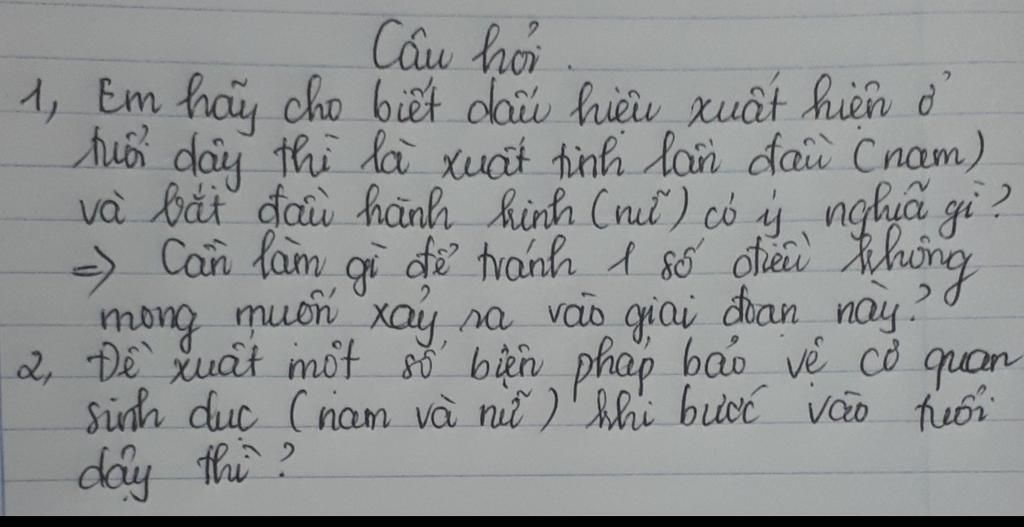 Câu hỏi.
1, Em hãy cho biết dấu hiệu xuất hiện ở
tuổi dậy thì là xuất tinh lần đầu (nam)
và bắt đầu hành kinh (nữ) có ý nghĩa gì?
=> Cần làm gì để tránh 1 số điều không
mong muốn xảy ra vào giai đoạn này?
2, Đề xuất một số biện pháp bảo vệ cơ quan
sinh dục (nam và nữ) khi bước vào tuổi
dậy thì?